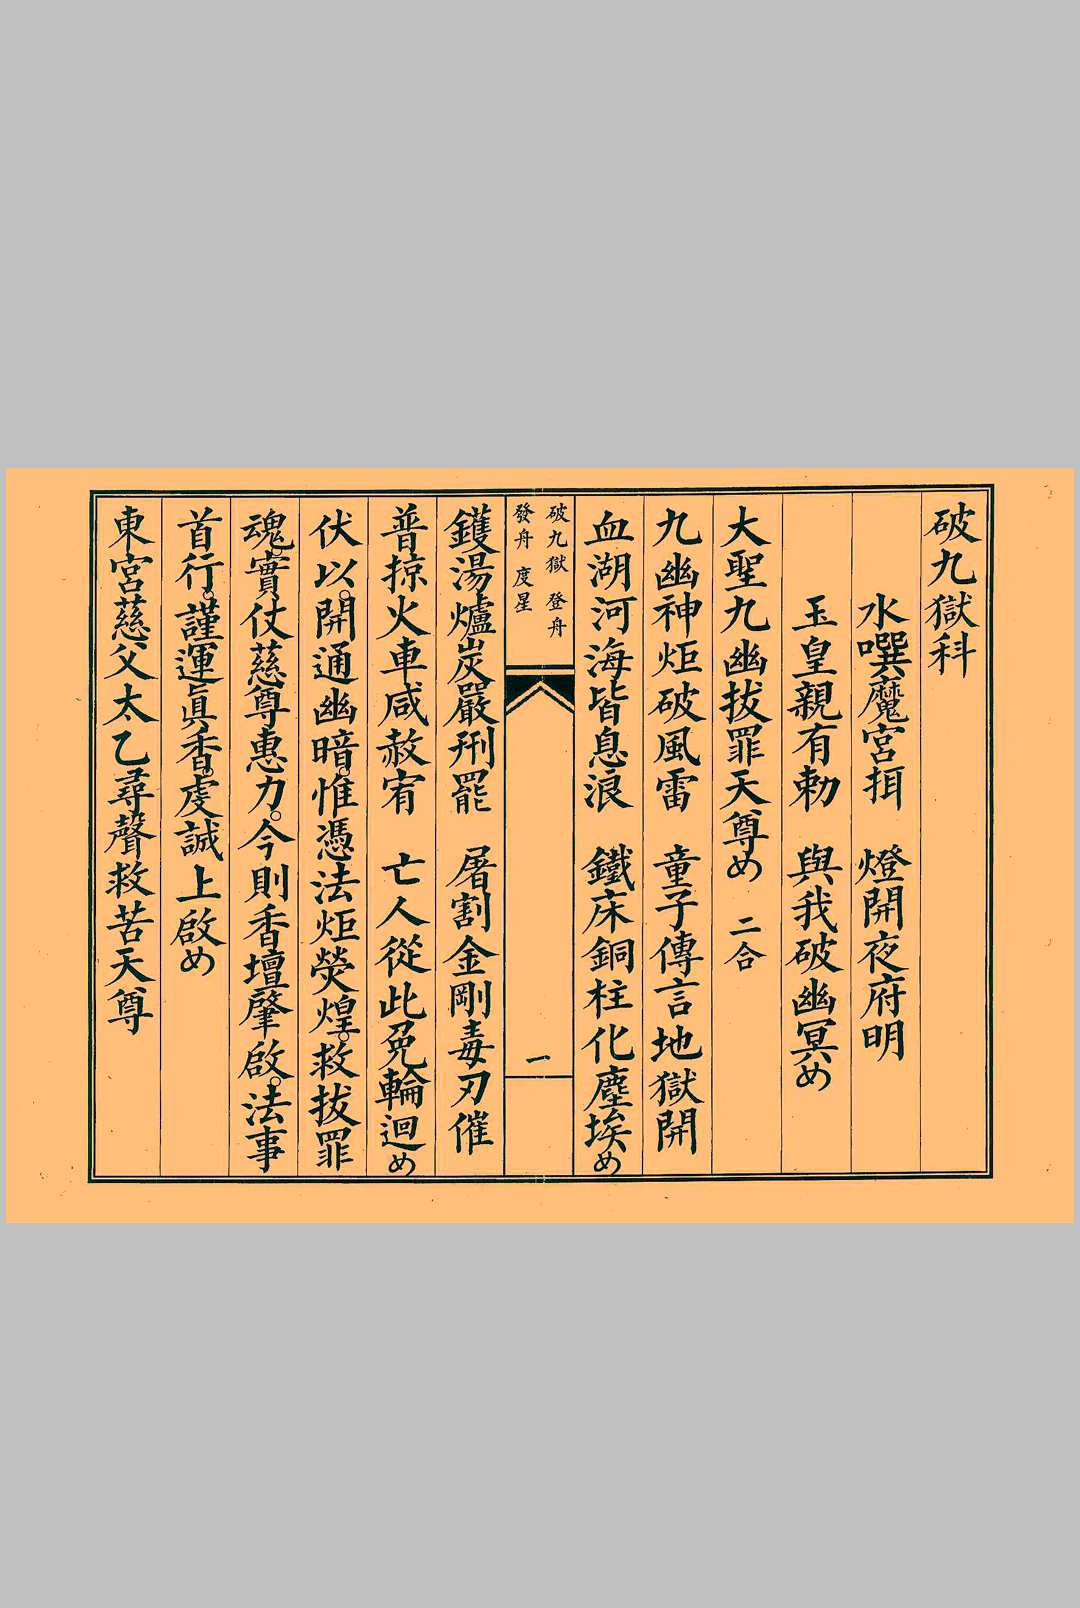 破九獄科
水噀魔宮拑　燈開夜府明
玉皇親有勅　與我破幽冥め
大聖九幽拔罪天尊め　二合
九幽神炬破風雷　童子傳言地獄開
血湖河海皆息浪　鐵床銅柱化塵埃め
破九獄　登舟
發舟　度星
一
鑊湯爐炭嚴刑罷　屠割金剛毒刃催
普掠火車咸赦宥　亡人從此免輪迴め
伏以。開通幽暗。惟憑法炬熒煌。救拔罪
魂。實仗慈尊惠力。今則香壇肇啟。法事
首行。謹運眞香。虔誠上啟め
東宮慈父太乙尋聲救苦天尊